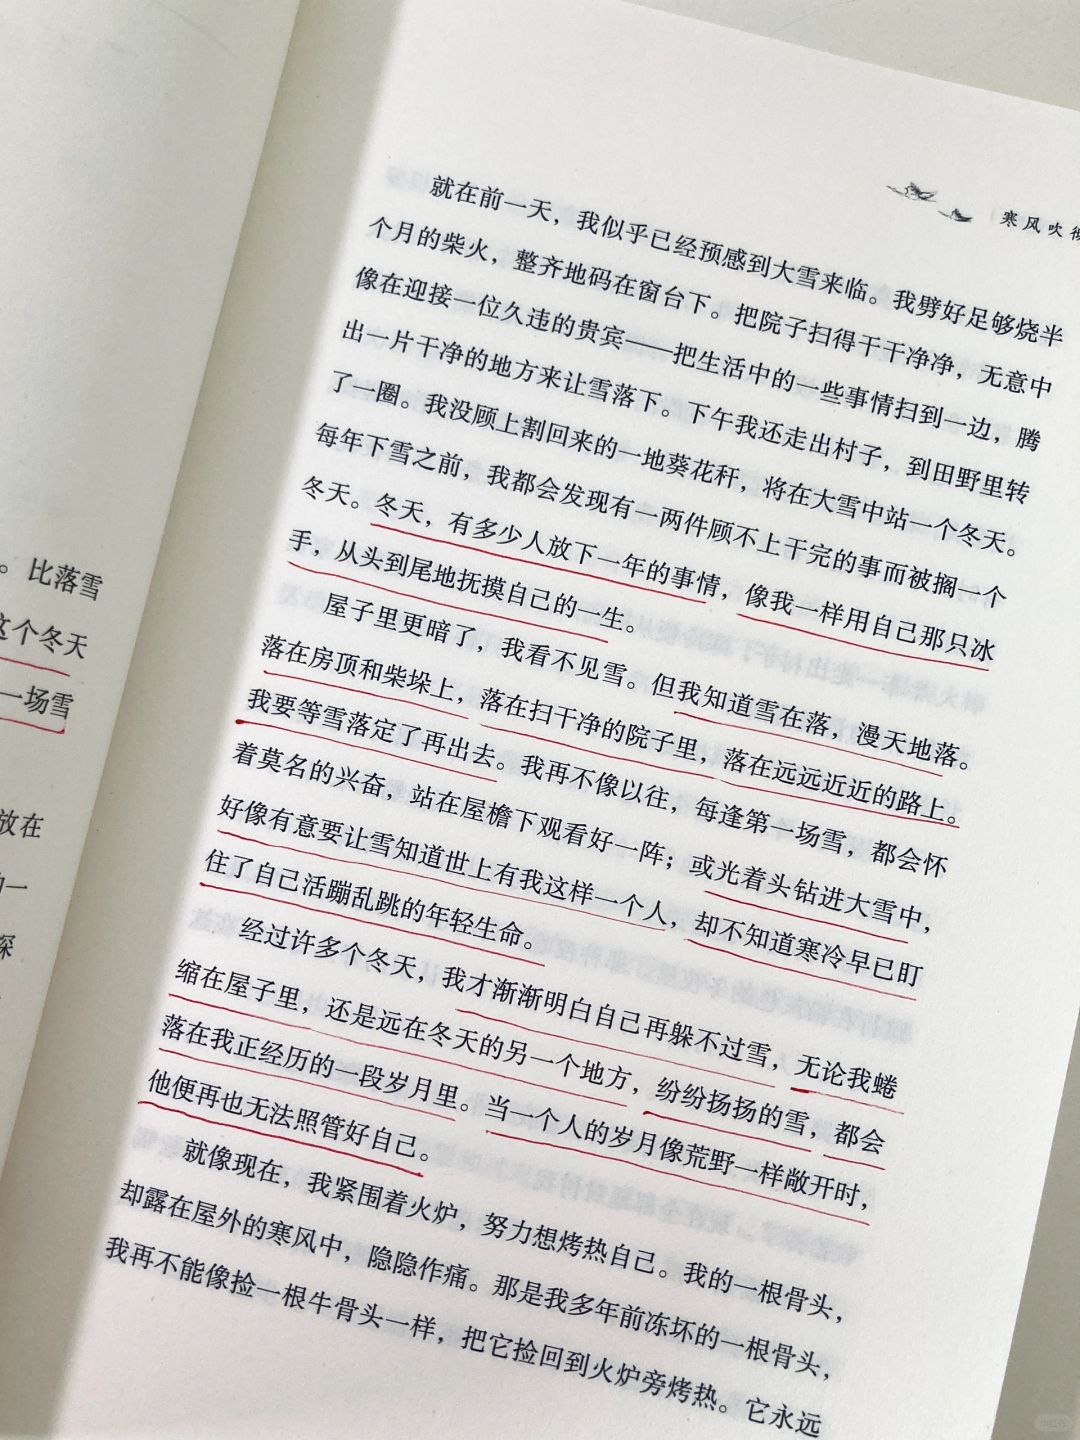 。比落雪
这个冬天
一场雪
放在
的一
深
寒风吹彻
就在前一天，我似乎已经预感到大雪来临。我劈好足够烧半
个月的柴火，整齐地码在窗台下。把院子扫得干干净净，无意中
像在迎接一位久违的贵宾——把生活中的一些事情扫到一边，腾
出一片干净的地方来让雪落下。下午我还走出村子，到田野里转
了一圈。我没顾上割回来的一地葵花秆，将在大雪中站一个冬天。
每年下雪之前，我都会发现有一两件顾不上干完的事而被搁一个
冬天。冬天，有多少人放下一年的事情，像我一样用自己那只冰
手，从头到尾地抚摸自己的一生。
屋子里更暗了，我看不见雪。但我知道雪在落，漫天地落。
落在房顶和柴垛上，落在扫干净的院子里，落在远远近近的路上。
我要等雪落定了再出去。我再不像以往，每逢第一场雪，都会怀
着莫名的兴奋，站在屋檐下观看好一阵；或光着头钻进大雪中，
好像有意要让雪知道世上有我这样一个人，却不知道寒冷早已盯
住了自己活蹦乱跳的年轻生命。
经过许多个冬天，我才渐渐明白自己再躲不过雪，无论我蜷
缩在屋子里，还是远在冬天的另一个地方，纷纷扬扬的雪，都会
落在我正经历的一段岁月里。当一个人的岁月像荒野一样敞开时，
他便再也无法照管好自己。
就像现在，我紧围着火炉，努力想烤热自己。我的一根骨头，
却露在屋外的寒风中，隐隐作痛。那是我多年前冻坏的一根骨头，
我再不能像捡一根牛骨头一样，把它捡回到火炉旁烤热。它永远
小红书